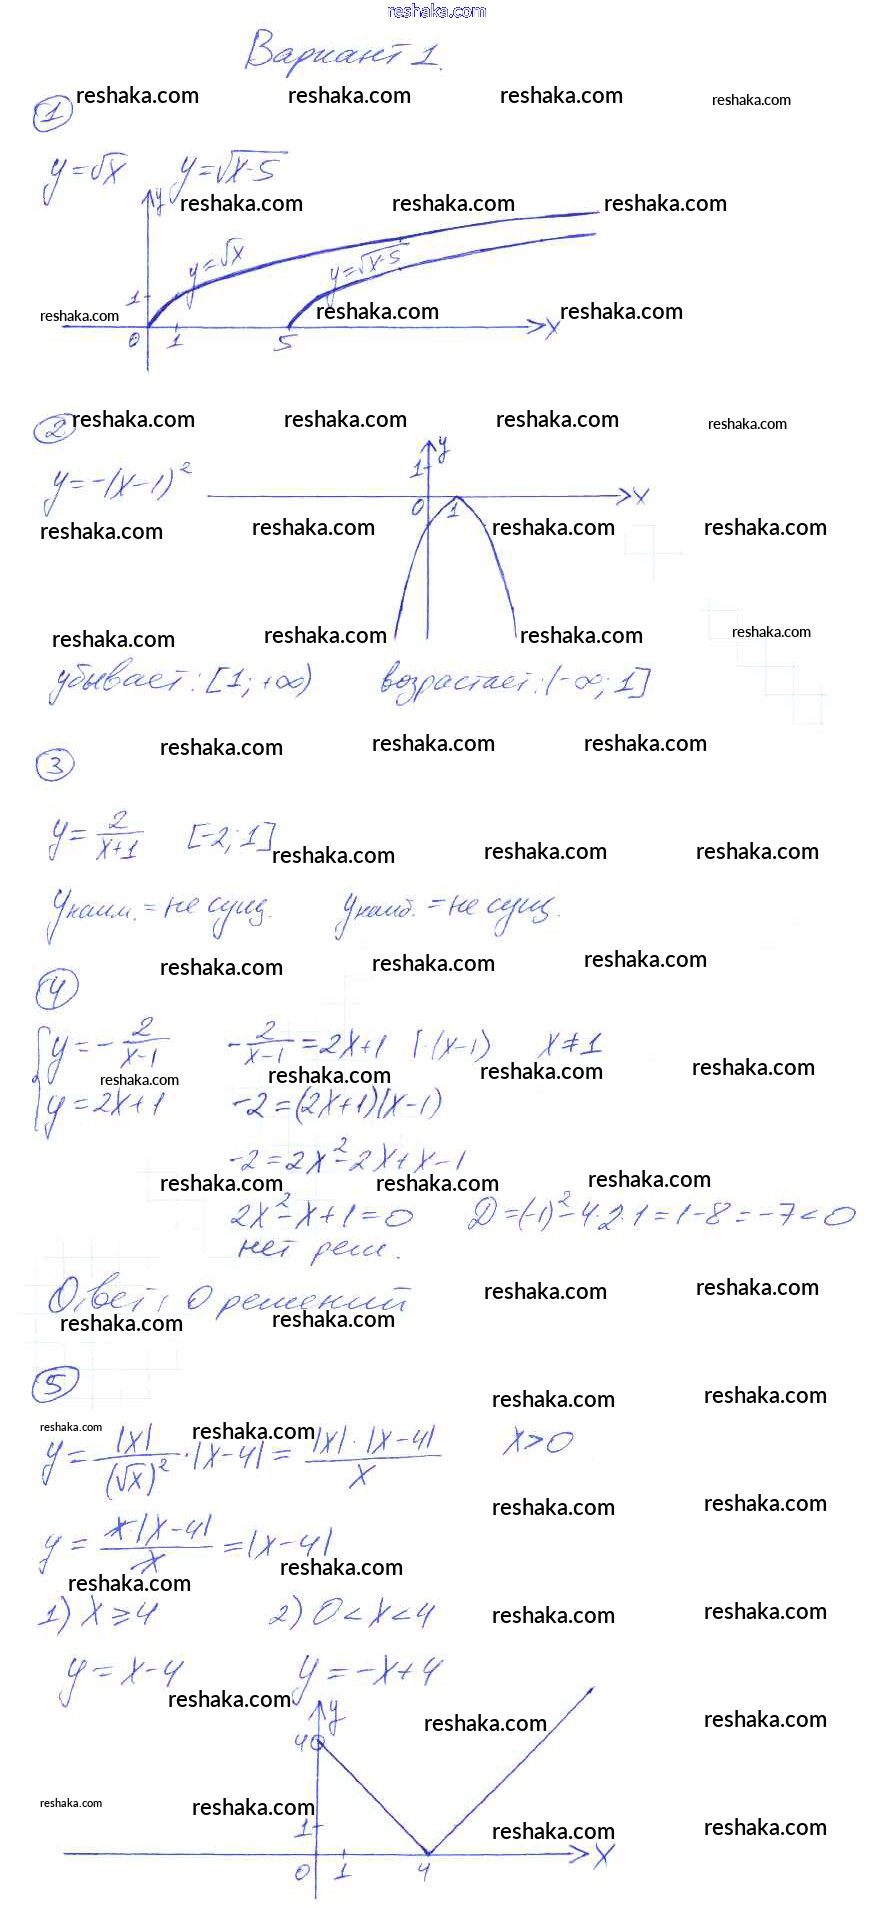 reshaka.com
Вариант 1.
reshaka.com reshaka.com reshaka.com reshaka.com
1
y=√x y=√x-5
reshaka.com reshaka.com reshaka.com
y
y=√x y=√x-5
1
reshaka.com reshaka.com reshaka.com
0 1 5 x
2 reshaka.com reshaka.com reshaka.com reshaka.com
y=-(x-1)²
y
1
x
0 1
reshaka.com reshaka.com reshaka.com reshaka.com
reshaka.com reshaka.com reshaka.com reshaka.com
убывает: [1; +∞) возрастает: (-∞; 1]
reshaka.com reshaka.com reshaka.com
3
y= 2/(x+1) [-2; 1]
reshaka.com reshaka.com reshaka.com
yнаим. = не сущ. yнаиб. = не сущ.
reshaka.com reshaka.com reshaka.com
4
y = - 2/(x-1) - 2/(x-1) = 2x+1 |·(x-1) x≠1
reshaka.com reshaka.com reshaka.com reshaka.com
y = 2x+1 -2=(2x+1)(x-1)
-2=2x²-2x+x-1
reshaka.com reshaka.com reshaka.com
2x²-x+1=0 D=(-1)²-4·2·1=1-8=-7<0
нет реш.
Ответ: 0 решений
reshaka.com reshaka.com reshaka.com reshaka.com
5
reshaka.com reshaka.com
reshaka.com reshaka.com
y = |x|/(√x)² · |x-4| = |x|·|x-4|/x x>0
reshaka.com reshaka.com
y = x·|x-4|/x = |x-4|
reshaka.com reshaka.com
1) x≥4 2) 0<x<4
reshaka.com reshaka.com
y = x-4 y = -x+4
reshaka.com reshaka.com reshaka.com
y
4
reshaka.com reshaka.com reshaka.com reshaka.com
1
0 1 4 x